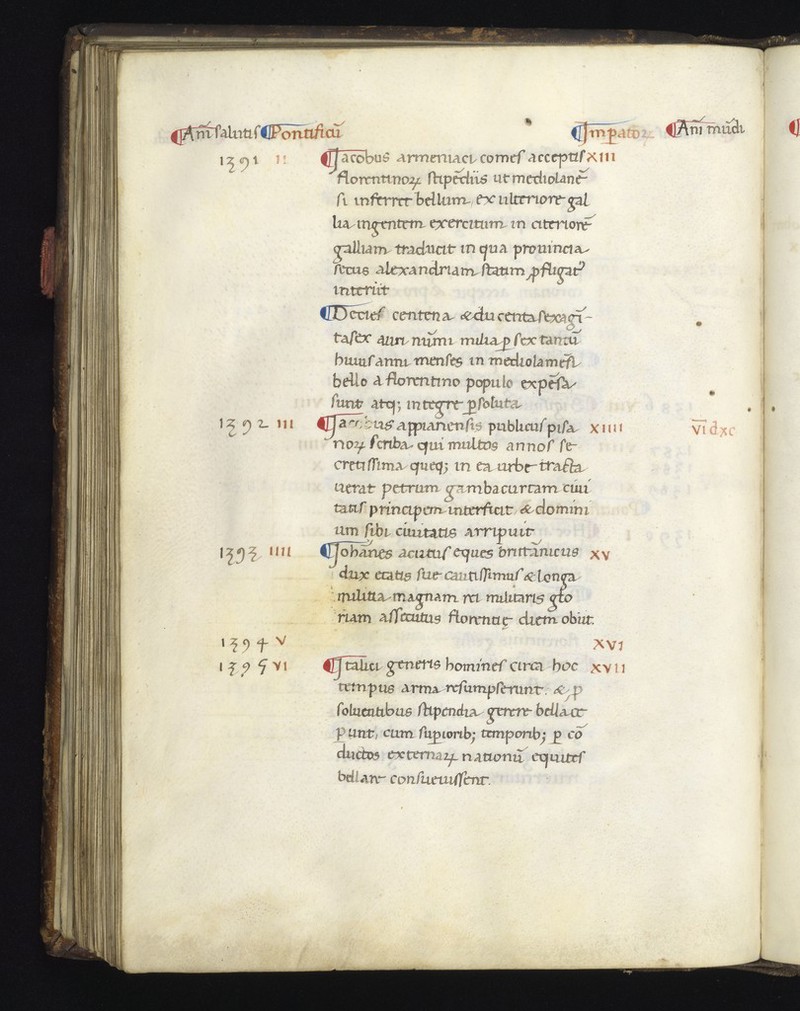 Anī salutis Pontificū Impator Anī mūdi
1391 II Jacobus armeniaci comes acceptis XIII
florentinoꝝ stipēdiis ut mediolanē
si inferret bellum, ex ulteriore gal
lia ingentem exercitum in citeriorē
galliam traducit in qua prouincia
secus alexandriam statim ꝓfligatꝰ
interiit
Decies centena & ducenta sexagī-
ta sex auri nūmi milia ꝑ sex tantū
huius anni menses in mediolanēsi
bello a florentino populo expēsa
sunt atqꝫ integre ꝑsoluta
1392 III Jacobus appianensis publicus pisa XIIII VIdxc
noꝝ scriba qui multos annos se-
cretissima queqꝫ in ea urbe tracta
uerat petrum gambacurtam ciui
tatis principem interficit & domini
um sibi ciuitatis arripuit
1393 IIII Johānes acutus eques britānicus XV
dux etatis sue cautissimus & longa
militia magnam rei militaris glo
riam assecutus florentię diem obiit
1394 V XVI
1395 VI Italici generis homines circa hoc XVII
tempus arma resumpserunt. & ꝑ
soluentibus stipendia gerere bella ce
punt, cum supioribꝫ temporibꝫ ꝑ cō
ductos externaꝝ nationū equites
bellare consueuissent.